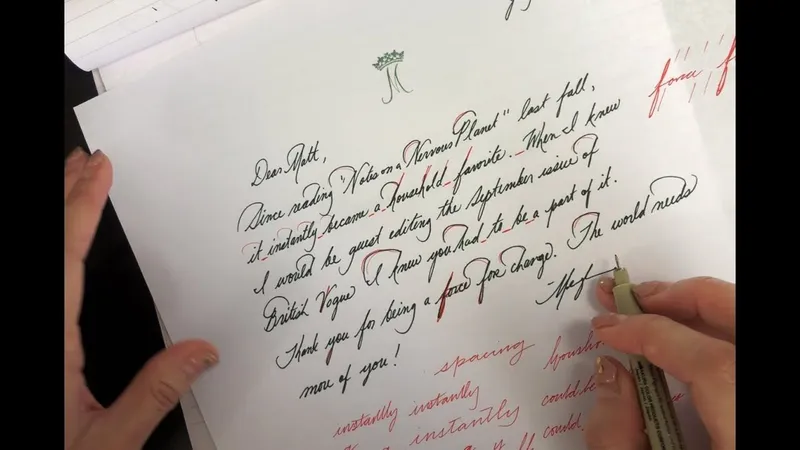 M
force f
Dear Matt,
Since reading "Notes on a Nervous Planet" last fall,
it instantly became a household favorite. When I knew
I would be guest editing the September issue of
British Vogue I knew you had to be a part of it.
Thank you for being a force for change. The world needs
more of you!
-Megh
spacing househo
instantlly instantly
instantly could be
could